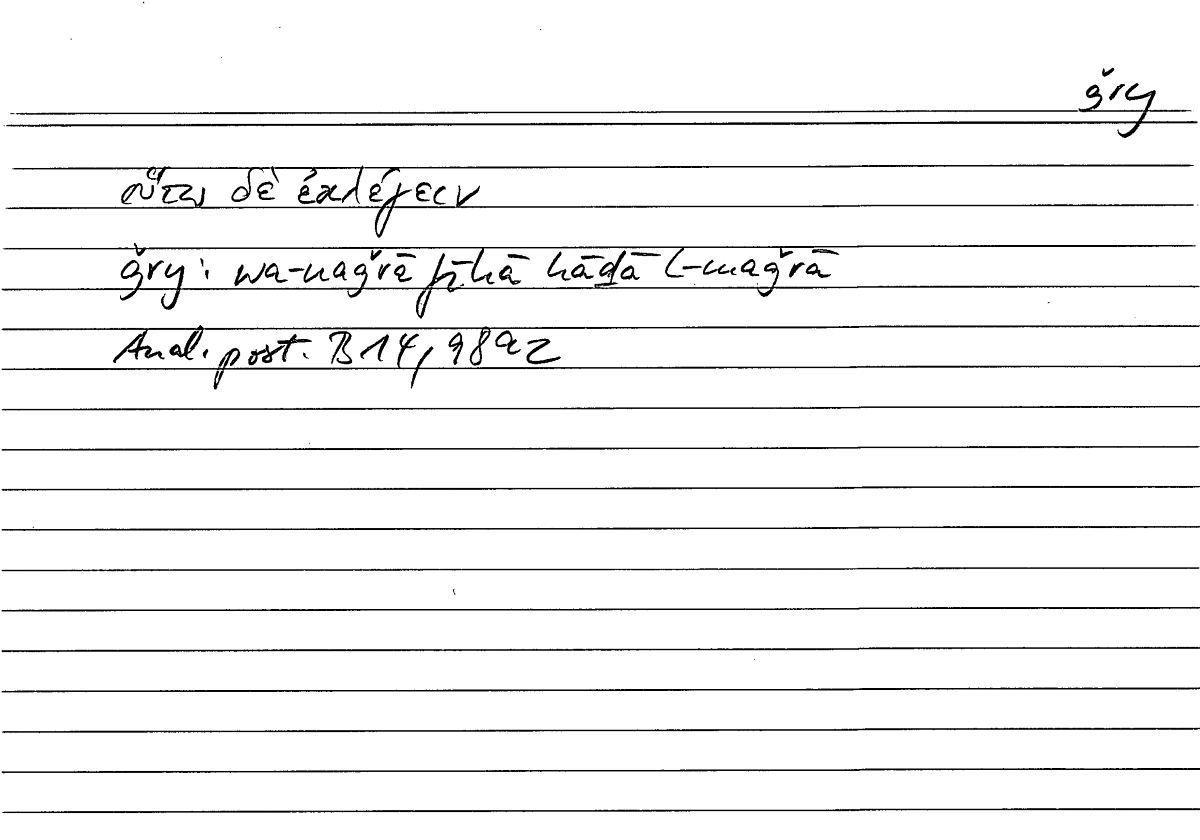 ǧry
οὕτω δὲ ἐκλέγειν
ǧry: wa-naǧrā fīhā hāḏā l-maǧrā
Anal. post. B 14, 98a2